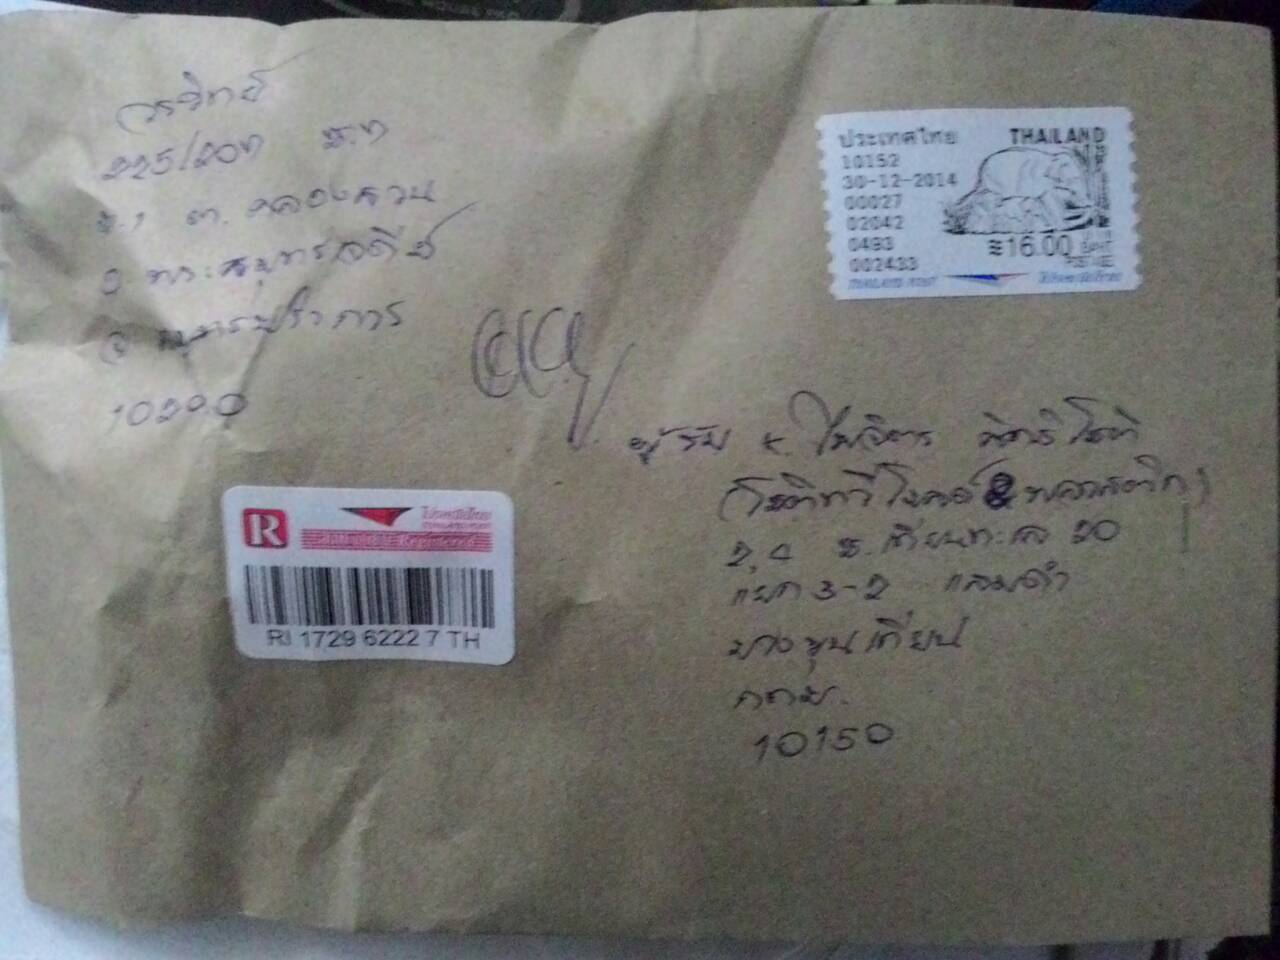 วรวิทย์
225/207 ซ.7
ซ.1 ต.คลองสวน
อ.พระสมุทรเจดีย์
จ สมุทรปราการ
10290
ประเทศไทย THAILAND
10152
30-12-2014
00027
02042
0493
002433
≋16.00 BAHT
POSTAGE
THAILAND POST ไปรษณีย์ไทย
ผู้รับ K. ไพจิตร
2,4 ซ.เทียนทะเล 20
แยก 3-2 แสมดำ
บางขุนเทียน
กทม.
10150
R
ไปรษณีย์ไทย
THAILAND POST
Registered
RI 1729 6222 7 TH